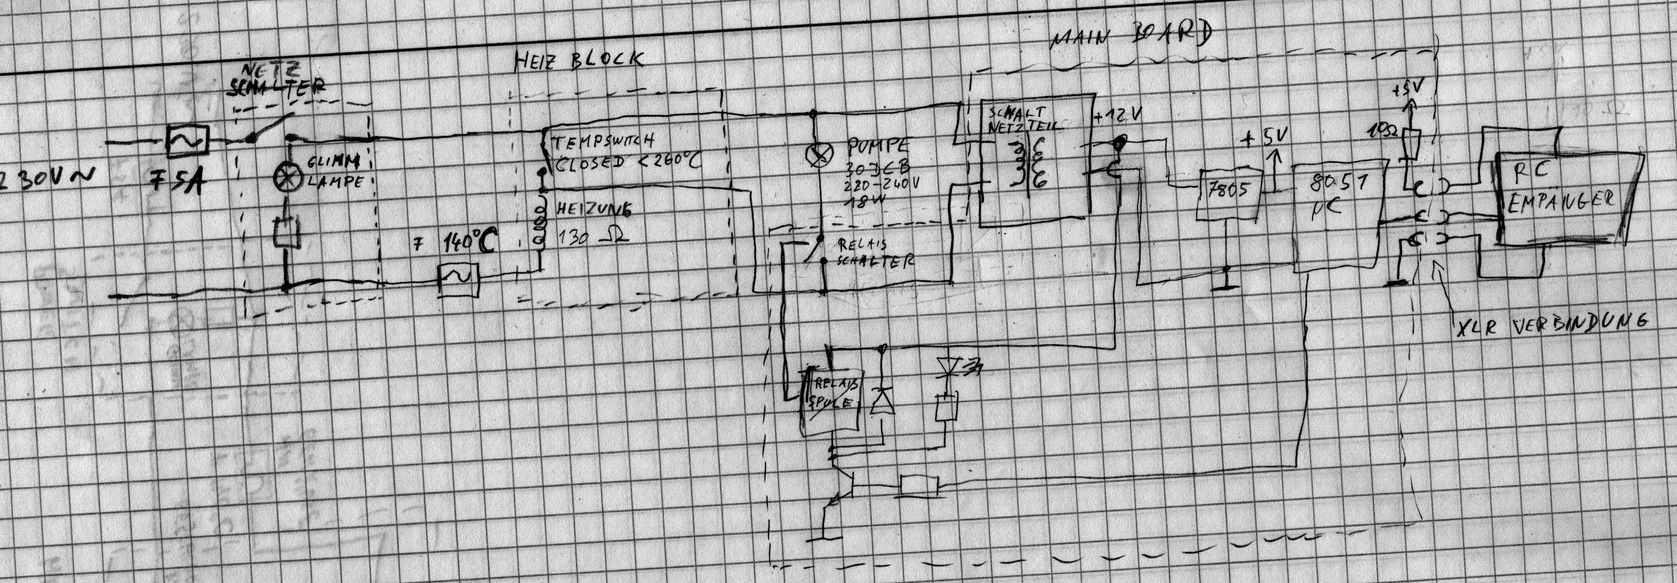 MAIN BOARD
HEIZ BLOCK
NETZ
SCHALTER
230V~
F 5A
GLIMM
LAMPE
F 140°C
TEMPSWITCH
CLOSED < 260°C
HEIZUNG
130 Ω
PUMPE
30DCB
220-240V
18W
RELAIS
SCHALTER
SCHALT
NETZTEIL
+12V
+5V
7805
8051
µC
+5V
10Ω
RC
EMPANGER
XLR VERBINDUNG
RELAIS
SPULE